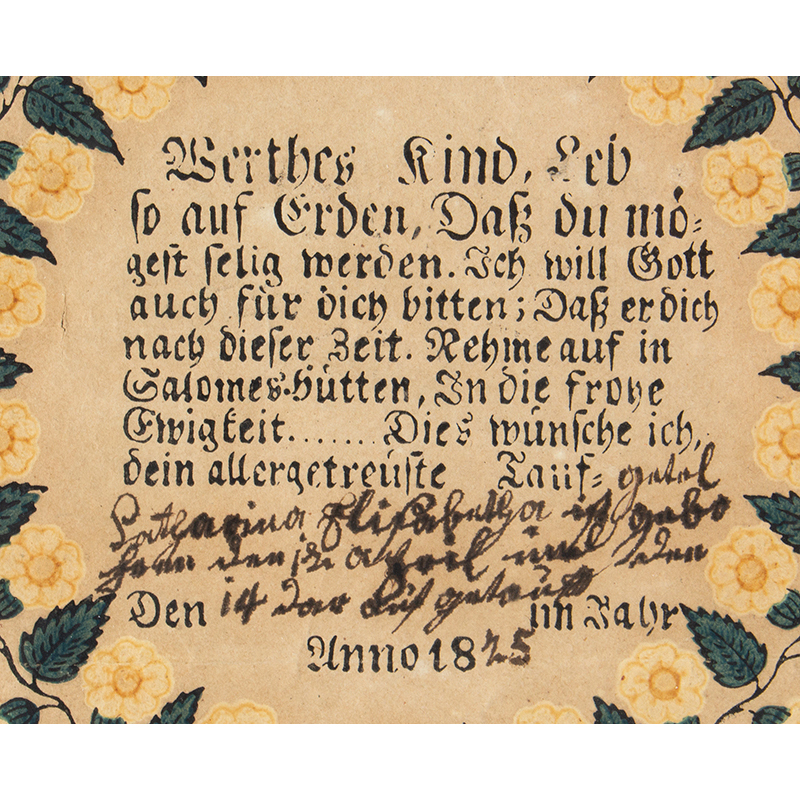 Werthes Kind, Leb
so auf Erden, Daß du mö⸗
gest selig werden. Ich will Gott
auch für dich bitten; Daß er dich
nach dieser Zeit. Nehme auf in
Salomes⸗Hütten, In die frohe
Ewigkeit....... Dies wünsche ich,
dein allergetreüste Tauf⸗ getel
Catharina Elisabetha ist gebo
den april und den
Den 14 dar auf getauft im Jahr
Anno 1825